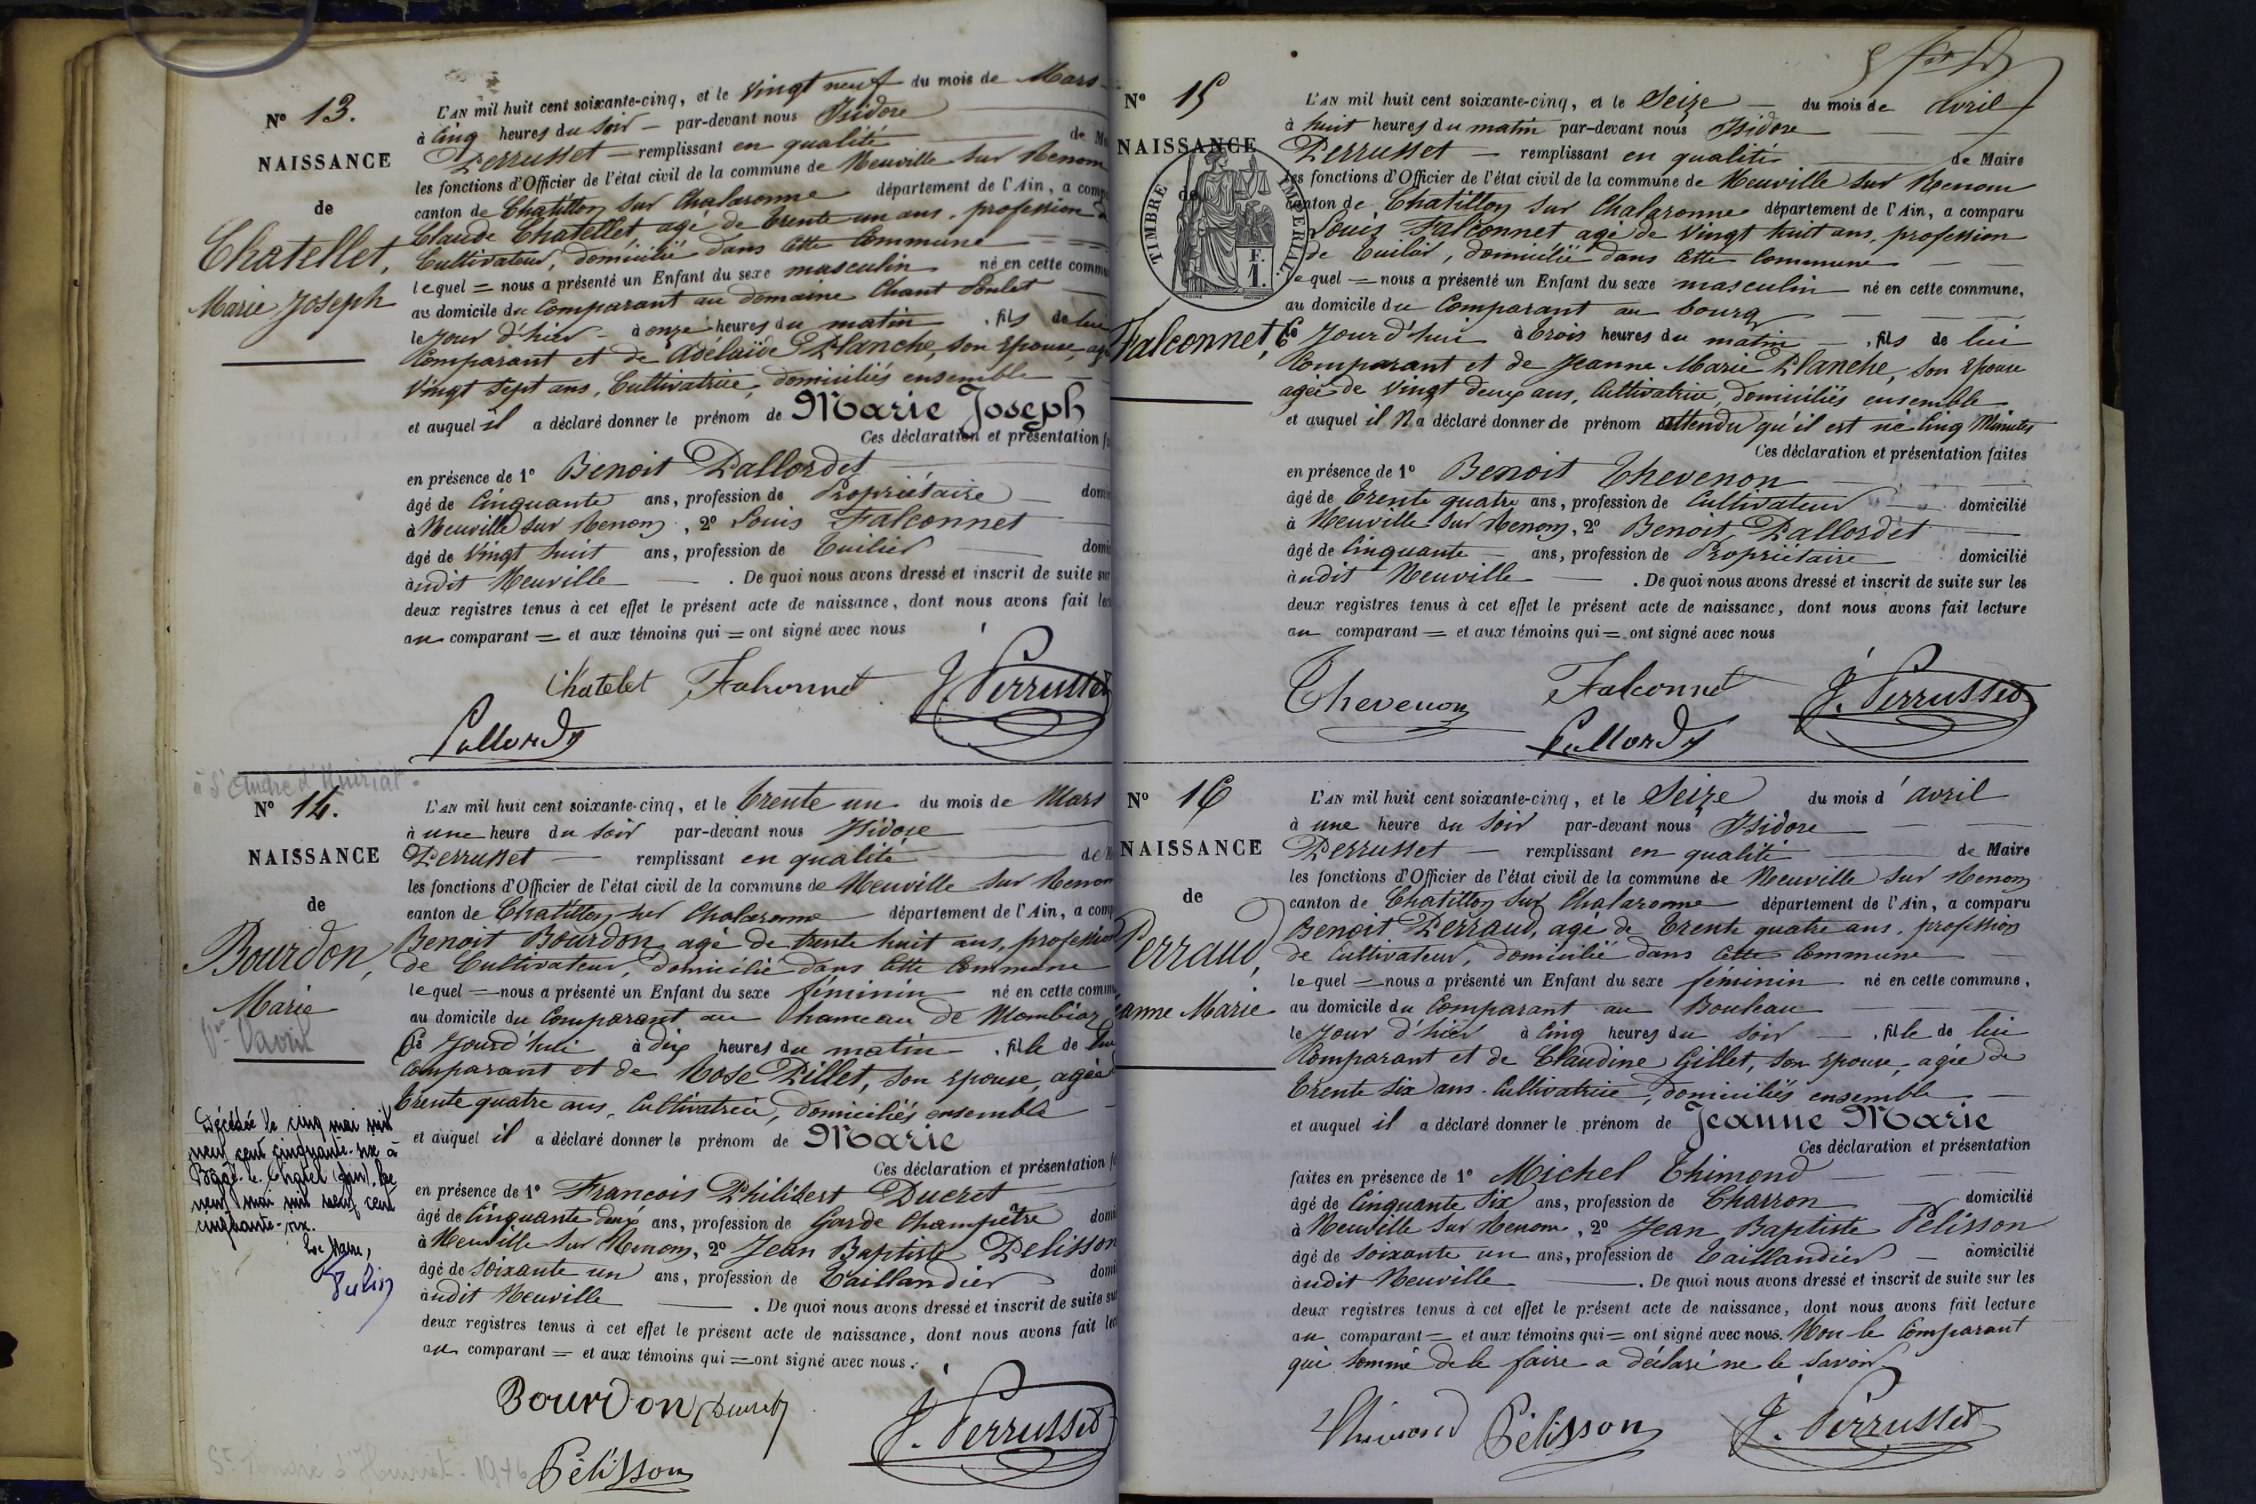 N° 13.
NAISSANCE
de
Chatellet,
Marie Joseph
L'AN mil huit cent soixante-cinq, et le vingt neuf du mois de Mars
à Cinq heures du soir — par-devant nous Isidore
Perrusset — remplissant en qualité de M
les fonctions d'Officier de l'état civil de la commune de Neuville sur Renom
canton de Chatillon sur Chalaronne département de l'Ain, a comp
Claude Chatellet agé de trente un ans, profession d
Cultivateur, domicilié dans cette Commune
lequel = nous a présenté un Enfant du sexe masculin né en cette commu
au domicile du Comparant au domaine Chant Poulet
le jour d'hier à onze heures du matin , fils de lui
Comparant et de Adélaïde Planche, son Epouse, ag
vingt sept ans, Cultivatrice, domiciliés ensemble
et auquel il a déclaré donner le prénom de Marie Joseph
Ces déclaration et présentation f
en présence de 1° Benoit Pallordet
âgé de Cinquante ans, profession de Propriétaire — domi
à Neuville sur Renom, 2° Louis Falconnet
âgé de vingt huit ans, profession de Tuilier domi
àudit Neuville — . De quoi nous avons dressé et inscrit de suite sur
deux registres tenus à cet effet le présent acte de naissance, dont nous avons fait lec
au comparant = et aux témoins qui = ont signé avec nous
Chatelet Falconnet J. Perrusset
Pallordet
à St André d'Huiriat.
N° 14.
NAISSANCE
de
Bourdon,
Marie
L'AN mil huit cent soixante-cinq, et le trente un du mois de Mars
à une heure du soir par-devant nous Isidore
Perrusset — remplissant en qualité de M
les fonctions d'Officier de l'état civil de la commune de Neuville sur Renom
canton de Chatillon sur Chalaronne département de l'Ain, a comp
Benoit Bourdon agé de trente huit ans, profession
de Cultivateur, domicilié dans cette Commune
lequel = nous a présenté un Enfant du sexe féminin né en cette commu
au domicile du Comparant au hameau de Mombiaz
Ce Jourd'hui à dix heures du matin — , fille de lui
Comparant et de Rose Pillet, son Epouse, agée
trente quatre ans, Cultivatrice, domiciliés ensemble
et auquel il a déclaré donner le prénom de Marie
Ces déclaration et présentation f
en présence de 1° François Philibert Ducret
âgé de Cinquante deux ans, profession de Garde Champêtre domi
à Neuville sur Renom, 2° Jean Baptiste Pelisson
âgé de soixante un ans, profession de Taillandier domi
àudit Neuville — . De quoi nous avons dressé et inscrit de suite su
deux registres tenus à cet effet le présent acte de naissance, dont nous avons fait lec
au comparant = et aux témoins qui = ont signé avec nous.
Décédée le cinq mai mil
neuf cent cinquante-six à
Bâgé-le-Châtel (Ain). Le
neuf mai mil neuf cent
cinquante-six.
Le Maire,
Bourdon Ducret J. Perrusset
Pélisson
St André d'Huiriat. 1946
N° 15
NAISSANCE
de
TIMBRE IMPERIAL
F.
1.
Falconnet,
L'AN mil huit cent soixante-cinq, et le Seize — du mois de avril
à huit heures du matin par-devant nous Isidore
Perrusset — remplissant en qualité de Maire
les fonctions d'Officier de l'état civil de la commune de Neuville sur Renom
canton de Chatillon sur Chalaronne département de l'Ain, a comparu
Louis Falconnet agé de vingt huit ans, profession
de Tuilier, domicilié dans cette Commune
lequel = nous a présenté un Enfant du sexe masculin né en cette commune,
au domicile du Comparant au bourg
Ce Jourd'hui à trois heures du matin — , fils de lui
Comparant et de Jeanne Marie Planche, son Epouse
agée de vingt deux ans, Cultivatrice, domiciliés ensemble
et auquel il N'a déclaré donner de prénom attendu qu'il est né Cinq Minutes
Ces déclaration et présentation faites
en présence de 1° Benoit Thevenon
âgé de Trente quatre ans, profession de Cultivateur — domicilié
à Neuville sur Renom, 2° Benoit Pallordet
âgé de Cinquante — ans, profession de Propriétaire domicilié
àudit Neuville — . De quoi nous avons dressé et inscrit de suite sur les
deux registres tenus à cet effet le présent acte de naissance, dont nous avons fait lecture
au comparant = et aux témoins qui = ont signé avec nous
Thevenon Falconnet J. Perrusset
Pallordet
N° 16
NAISSANCE
de
Perraud,
eanne Marie
L'AN mil huit cent soixante-cinq, et le Seize du mois d'avril
à une heure du soir par-devant nous Isidore
Perrusset — remplissant en qualité de Maire
les fonctions d'Officier de l'état civil de la commune de Neuville sur Renom
canton de Chatillon sur Chalaronne département de l'Ain, a comparu
Benoit Perraud, agé de trente quatre ans, profession
de Cultivateur, domicilié dans cette Commune
lequel = nous a présenté un Enfant du sexe féminin né en cette commune,
au domicile du Comparant au Bouleau
le jour d'hier à Cinq heures du soir — , fille de lui
Comparant et de Claudine Gillet, son Epouse, agée de
trente six ans, Cultivatrice, domiciliés ensemble
et auquel il a déclaré donner le prénom de Jeanne Marie
Ces déclaration et présentation
faites en présence de 1° Michel Thimond
âgé de Cinquante six ans, profession de Charron — domicilié
à Neuville sur Renom, 2° Jean Baptiste Pelisson
âgé de soixante un ans, profession de Taillandier — domicilié
àudit Neuville — . De quoi nous avons dressé et inscrit de suite sur les
deux registres tenus à cet effet le présent acte de naissance, dont nous avons fait lecture
au comparant = et aux témoins qui = ont signé avec nous. Non le Comparant
qui sommé de le faire a déclaré ne le savoir
Thimond Pélisson J. Perrusset